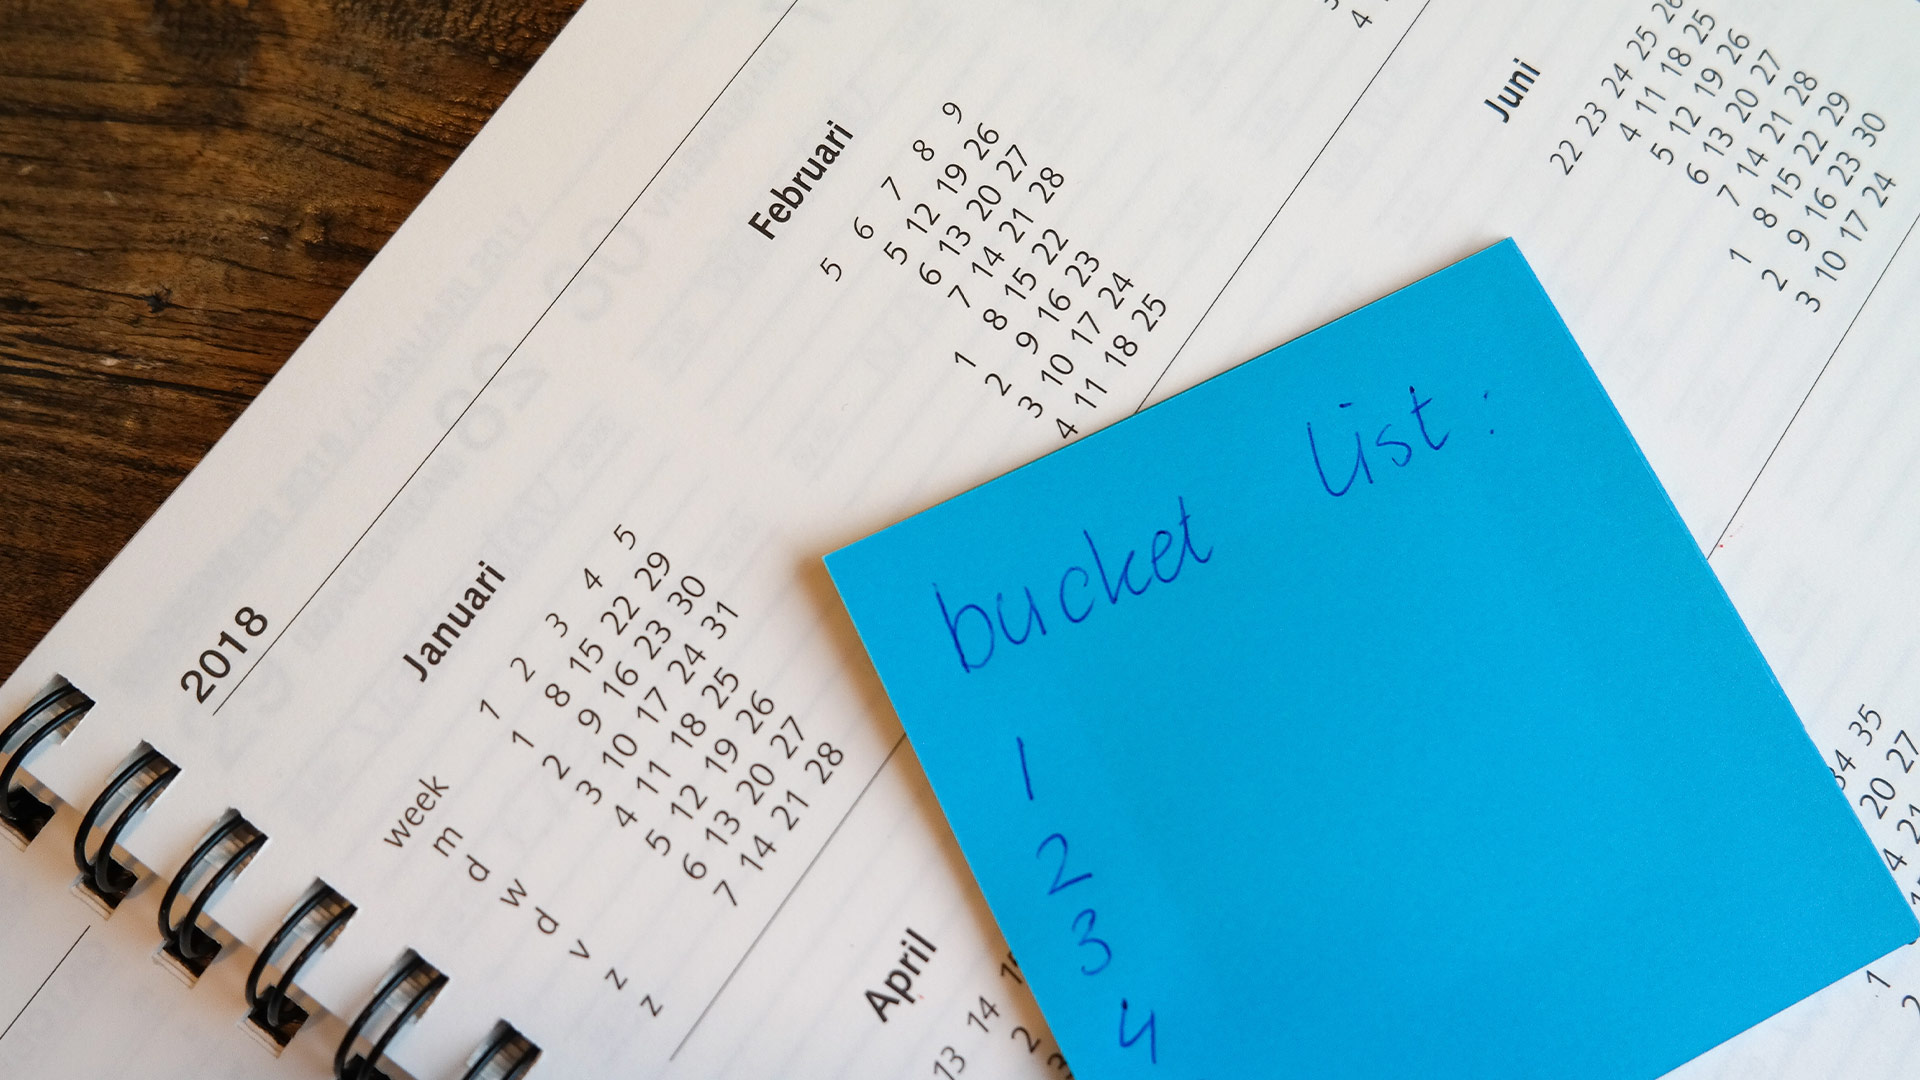 2018
Januari
week 1 2 3 4 5
m 1 8 15 22 29
d 2 9 16 23 30
w 3 10 17 24 31
d 4 11 18 25
v 5 12 19 26
z 6 13 20 27
z 7 14 21 28
Februari
5 6 7 8 9
5 12 19 26
6 13 20 27
7 14 21 28
1 8 15 22
2 9 16 23
3 10 17 24
4 11 18 25
April
13 14
2
Juni
22 23 24 25 26
4 11 18 25
5 12 19 26
6 13 20 27
7 14 21 28
1 8 15 22 29
2 9 16 23 30
3 10 17 24
35
20 27
bucket list:
1
2
3
4